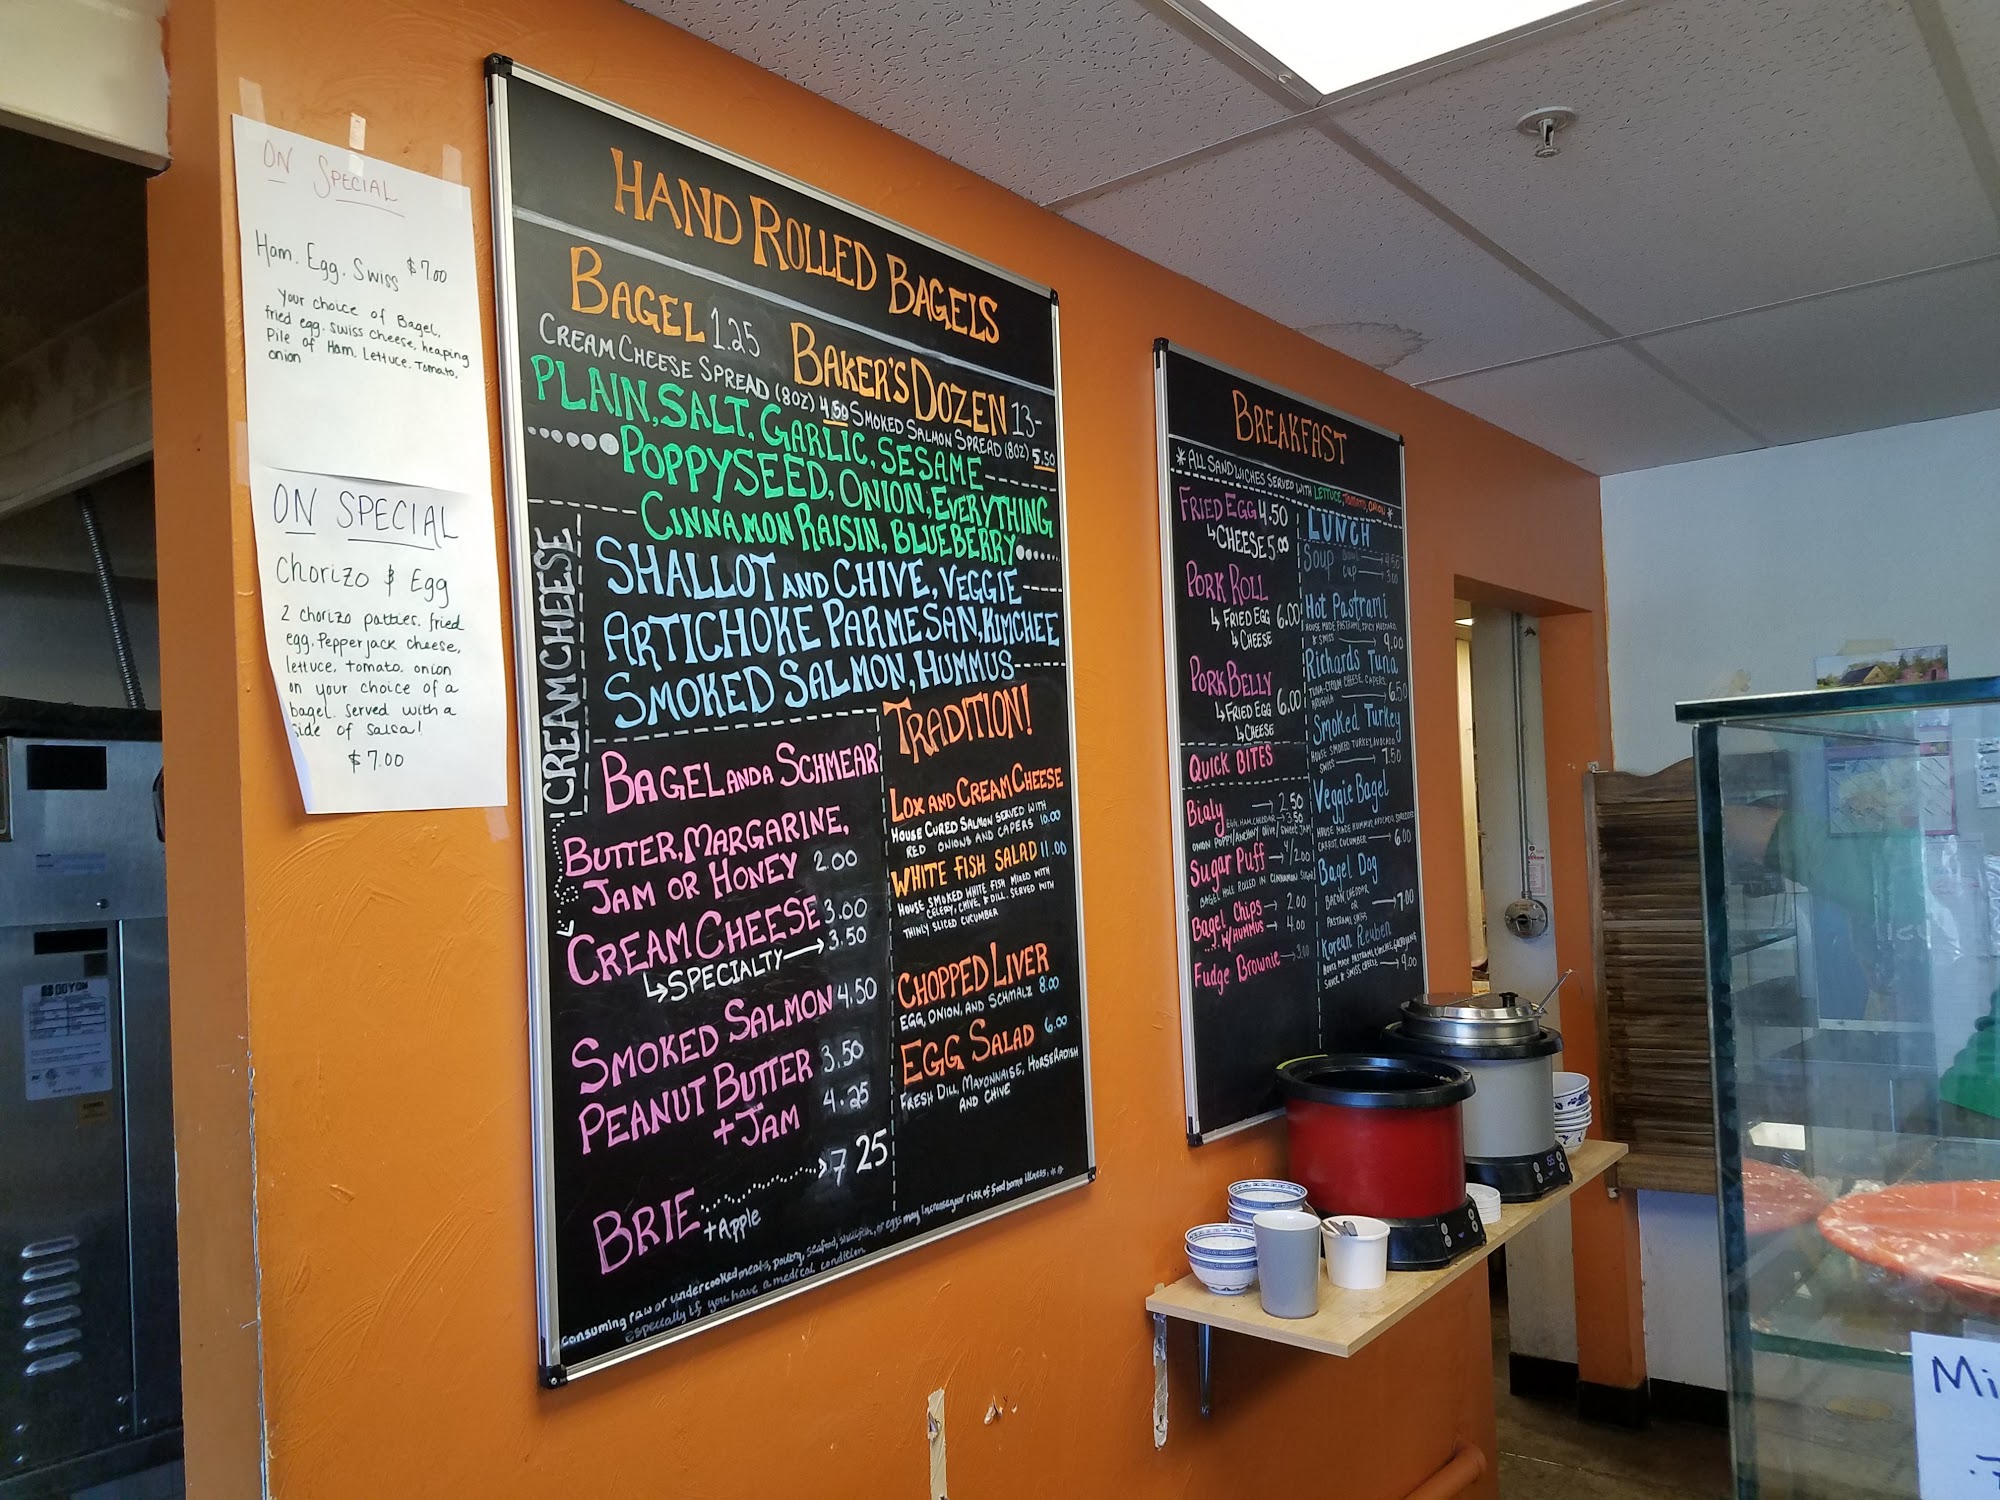 ON SPECIAL
Ham. Egg. Swiss $7.00
Your choice of Bagel,
fried egg. swiss cheese, heaping
Pile of Ham. Lettuce. Tomato.
onion
ON SPECIAL
Chorizo & Egg
2 chorizo patties. fried
egg. Pepperjack cheese,
lettuce, tomato. onion
on your choice of a
bagel. Served with a
side of salsa!
$7.00
HAND ROLLED BAGELS
BAGEL 1.25
BAKER'S DOZEN 13-
CREAM CHEESE SPREAD (8OZ) 4.50 SMOKED SALMON SPREAD (8OZ) 5.50
PLAIN, SALT, GARLIC, SESAME
POPPYSEED, ONION, EVERYTHING
CINNAMON RAISIN, BLUEBERRY
CREAM CHEESE
SHALLOT AND CHIVE, VEGGIE
ARTICHOKE PARMESAN, KIMCHEE
SMOKED SALMON, HUMMUS
BAGEL AND A SCHMEAR
BUTTER, MARGARINE,
JAM OR HONEY 2.00
CREAM CHEESE 3.00
↳SPECIALTY→3.50
SMOKED SALMON 4.50
PEANUT BUTTER 3.50
+JAM 4.25
BRIE 7 25
+Apple
TRADITION!
LOX AND CREAM CHEESE
HOUSE CURED SALMON SERVED WITH
RED ONIONS AND CAPERS 10.00
WHITE FISH SALAD 11.00
HOUSE SMOKED WHITE FISH MIXED WITH
CELERY, CHIVE, & DILL. SERVED WITH
THINLY SLICED CUCUMBER
CHOPPED LIVER
EGG, ONION, AND SCHMALZ 8.00
EGG SALAD 6.00
FRESH DILL, MAYONNAISE, HORSERADISH
AND CHIVE
consuming raw or undercooked meats, poultry, seafood, shellfish, or eggs may increase your risk of food borne illness, **
especially if you have a medical condition
BREAKFAST
*ALL SANDWICHES SERVED WITH LETTUCE, TOMATO, ONION*
FRIED EGG 4.50
↳CHEESE 5.00
PORK ROLL
↳FRIED EGG 6.00
↳CHEESE
PORK BELLY
↳FRIED EGG 6.00
↳CHEESE
QUICK BITES
Bialy → 2.50
EGG, HAM, CHEDDAR → 3.50
ONION POPPY/ANCHOVY OLIVE/SWEET JAM
Sugar Puff → 4/2.00
BAGEL HOLE ROLLED IN CINNAMON SUGAR
Bagel Chips → 2.00
W/HUMMUS → 4.00
Fudge Brownie → 3.00
LUNCH
Soup Bowl → 4.50
CUP → 3.00
Hot Pastrami
HOUSE MADE PASTRAMI, SPICY MUSTARD,
& SWISS → 9.00
Richards Tuna
TUNA-CREAM CHEESE, CAPERS,
ARUGULA → 6.50
Smoked Turkey
HOUSE SMOKED TURKEY, AVOCADO,
SWISS → 7.50
Veggie Bagel
HOUSE MADE HUMMUS, AVOCADO, SPROUTS
CARROT, CUCUMBER → 6.00
Bagel Dog
BACON CHEDDAR
OR → 7.00
PASTRAMI SWISS
Korean Reuben
HOUSE MADE PASTRAMI, KIMCHEE, GOCHUJANG
SAUCE & SWISS CHEESE → 9.00
DOYON
Mi